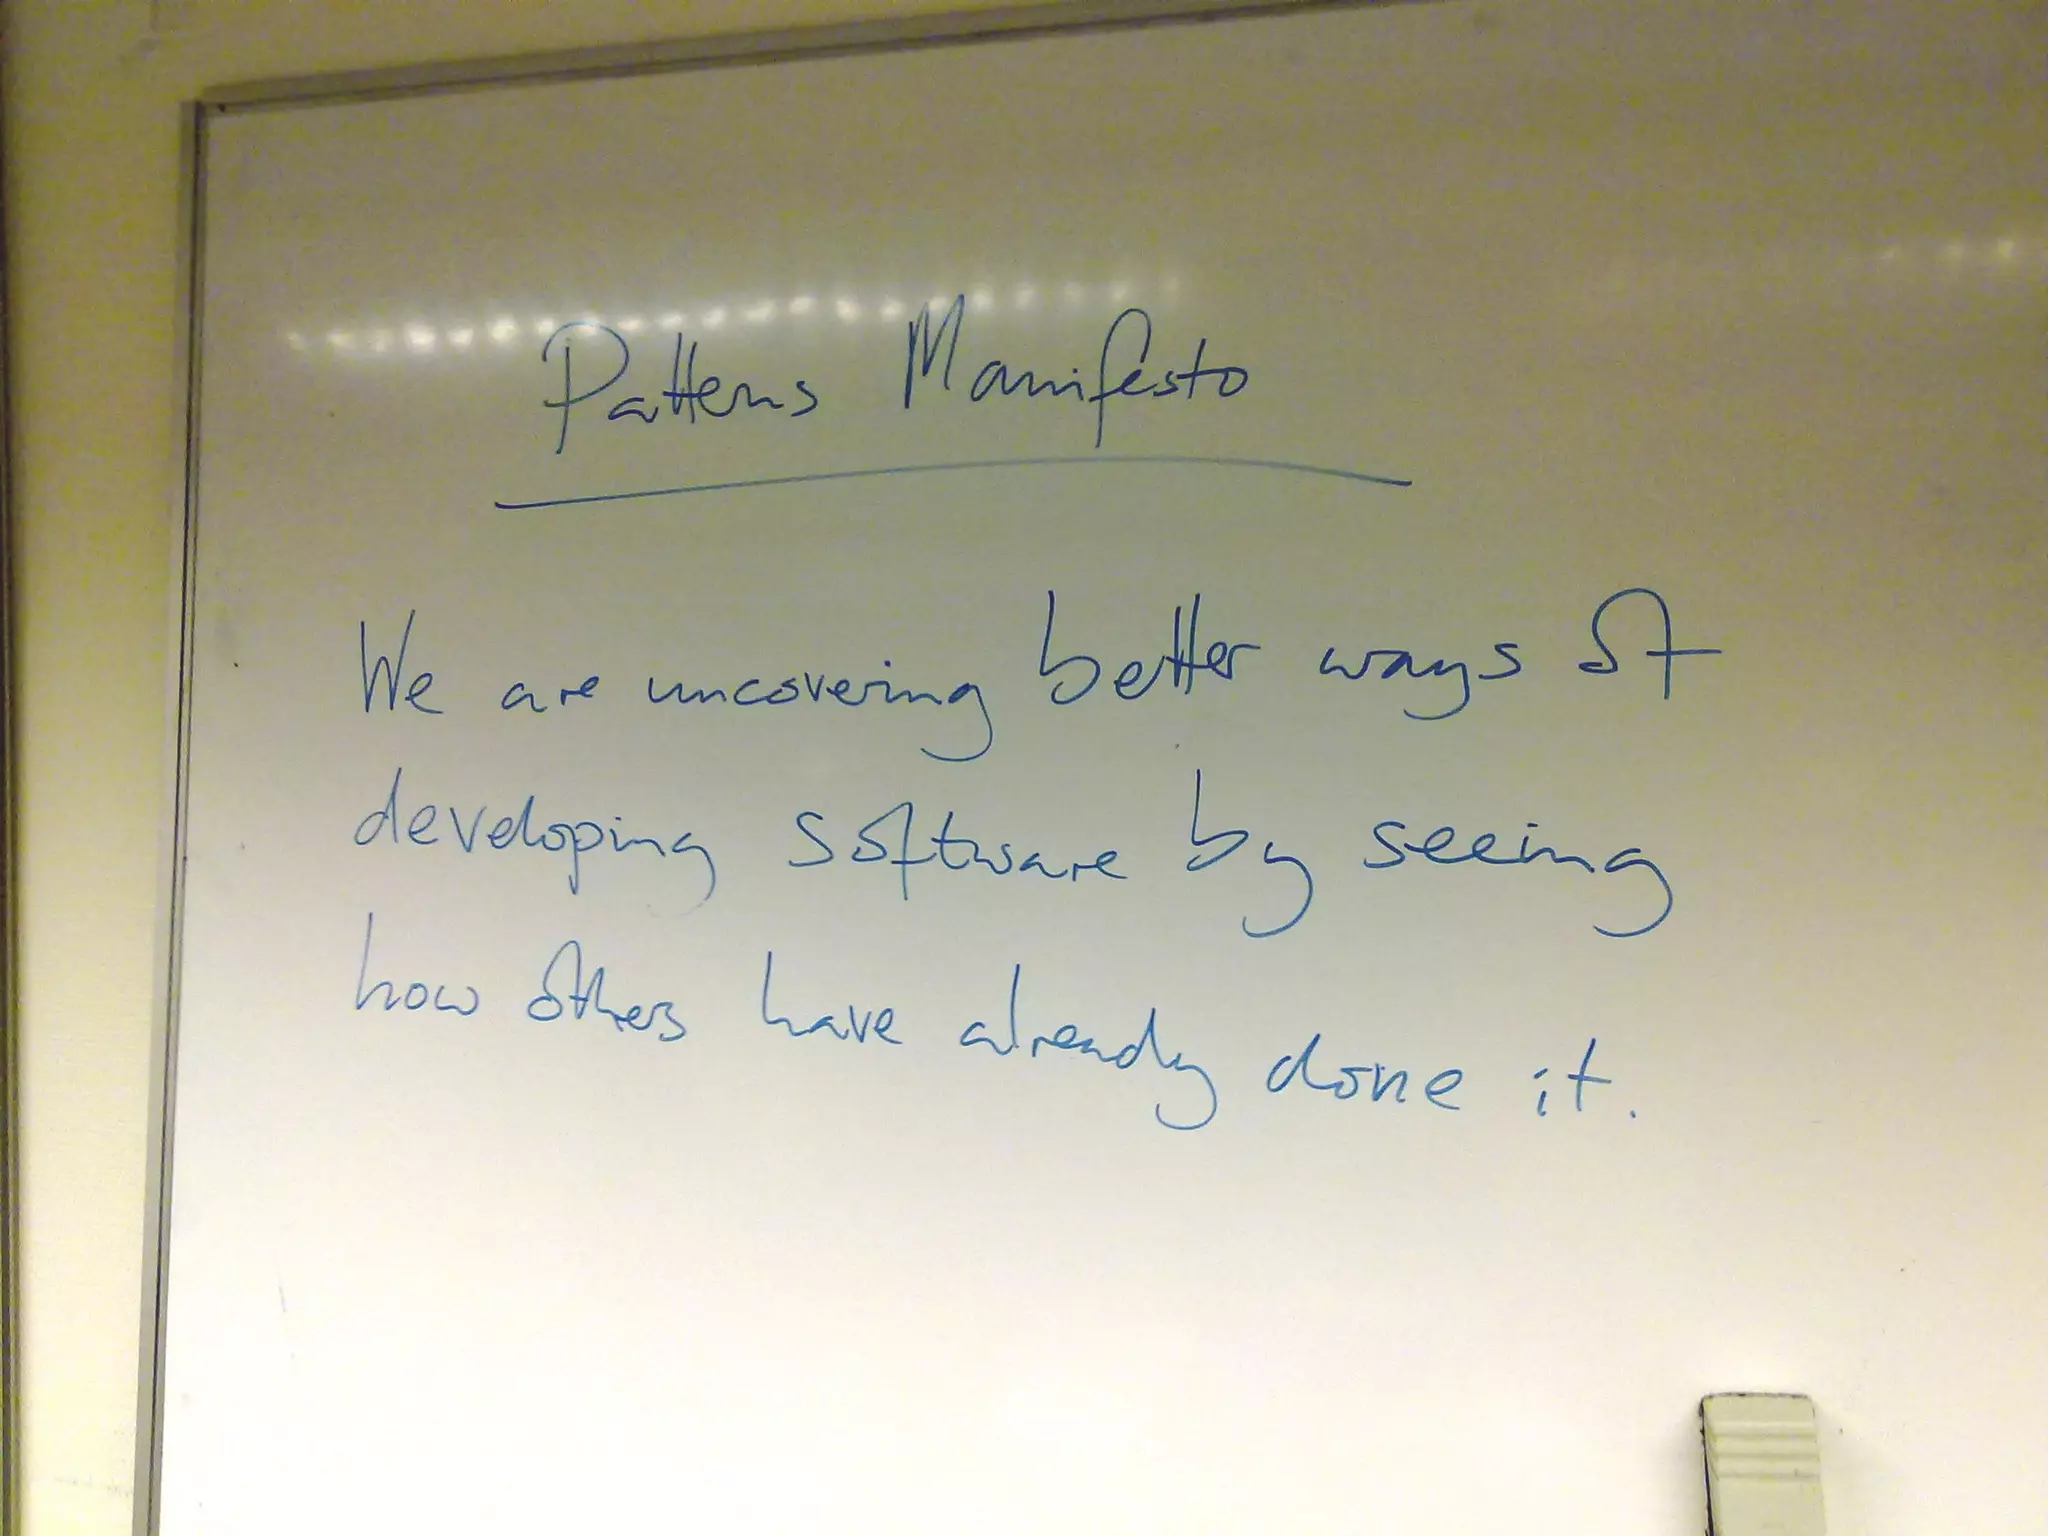 Patterns Manifesto
We are uncovering better ways of
developing software by seeing
how others have already done it.